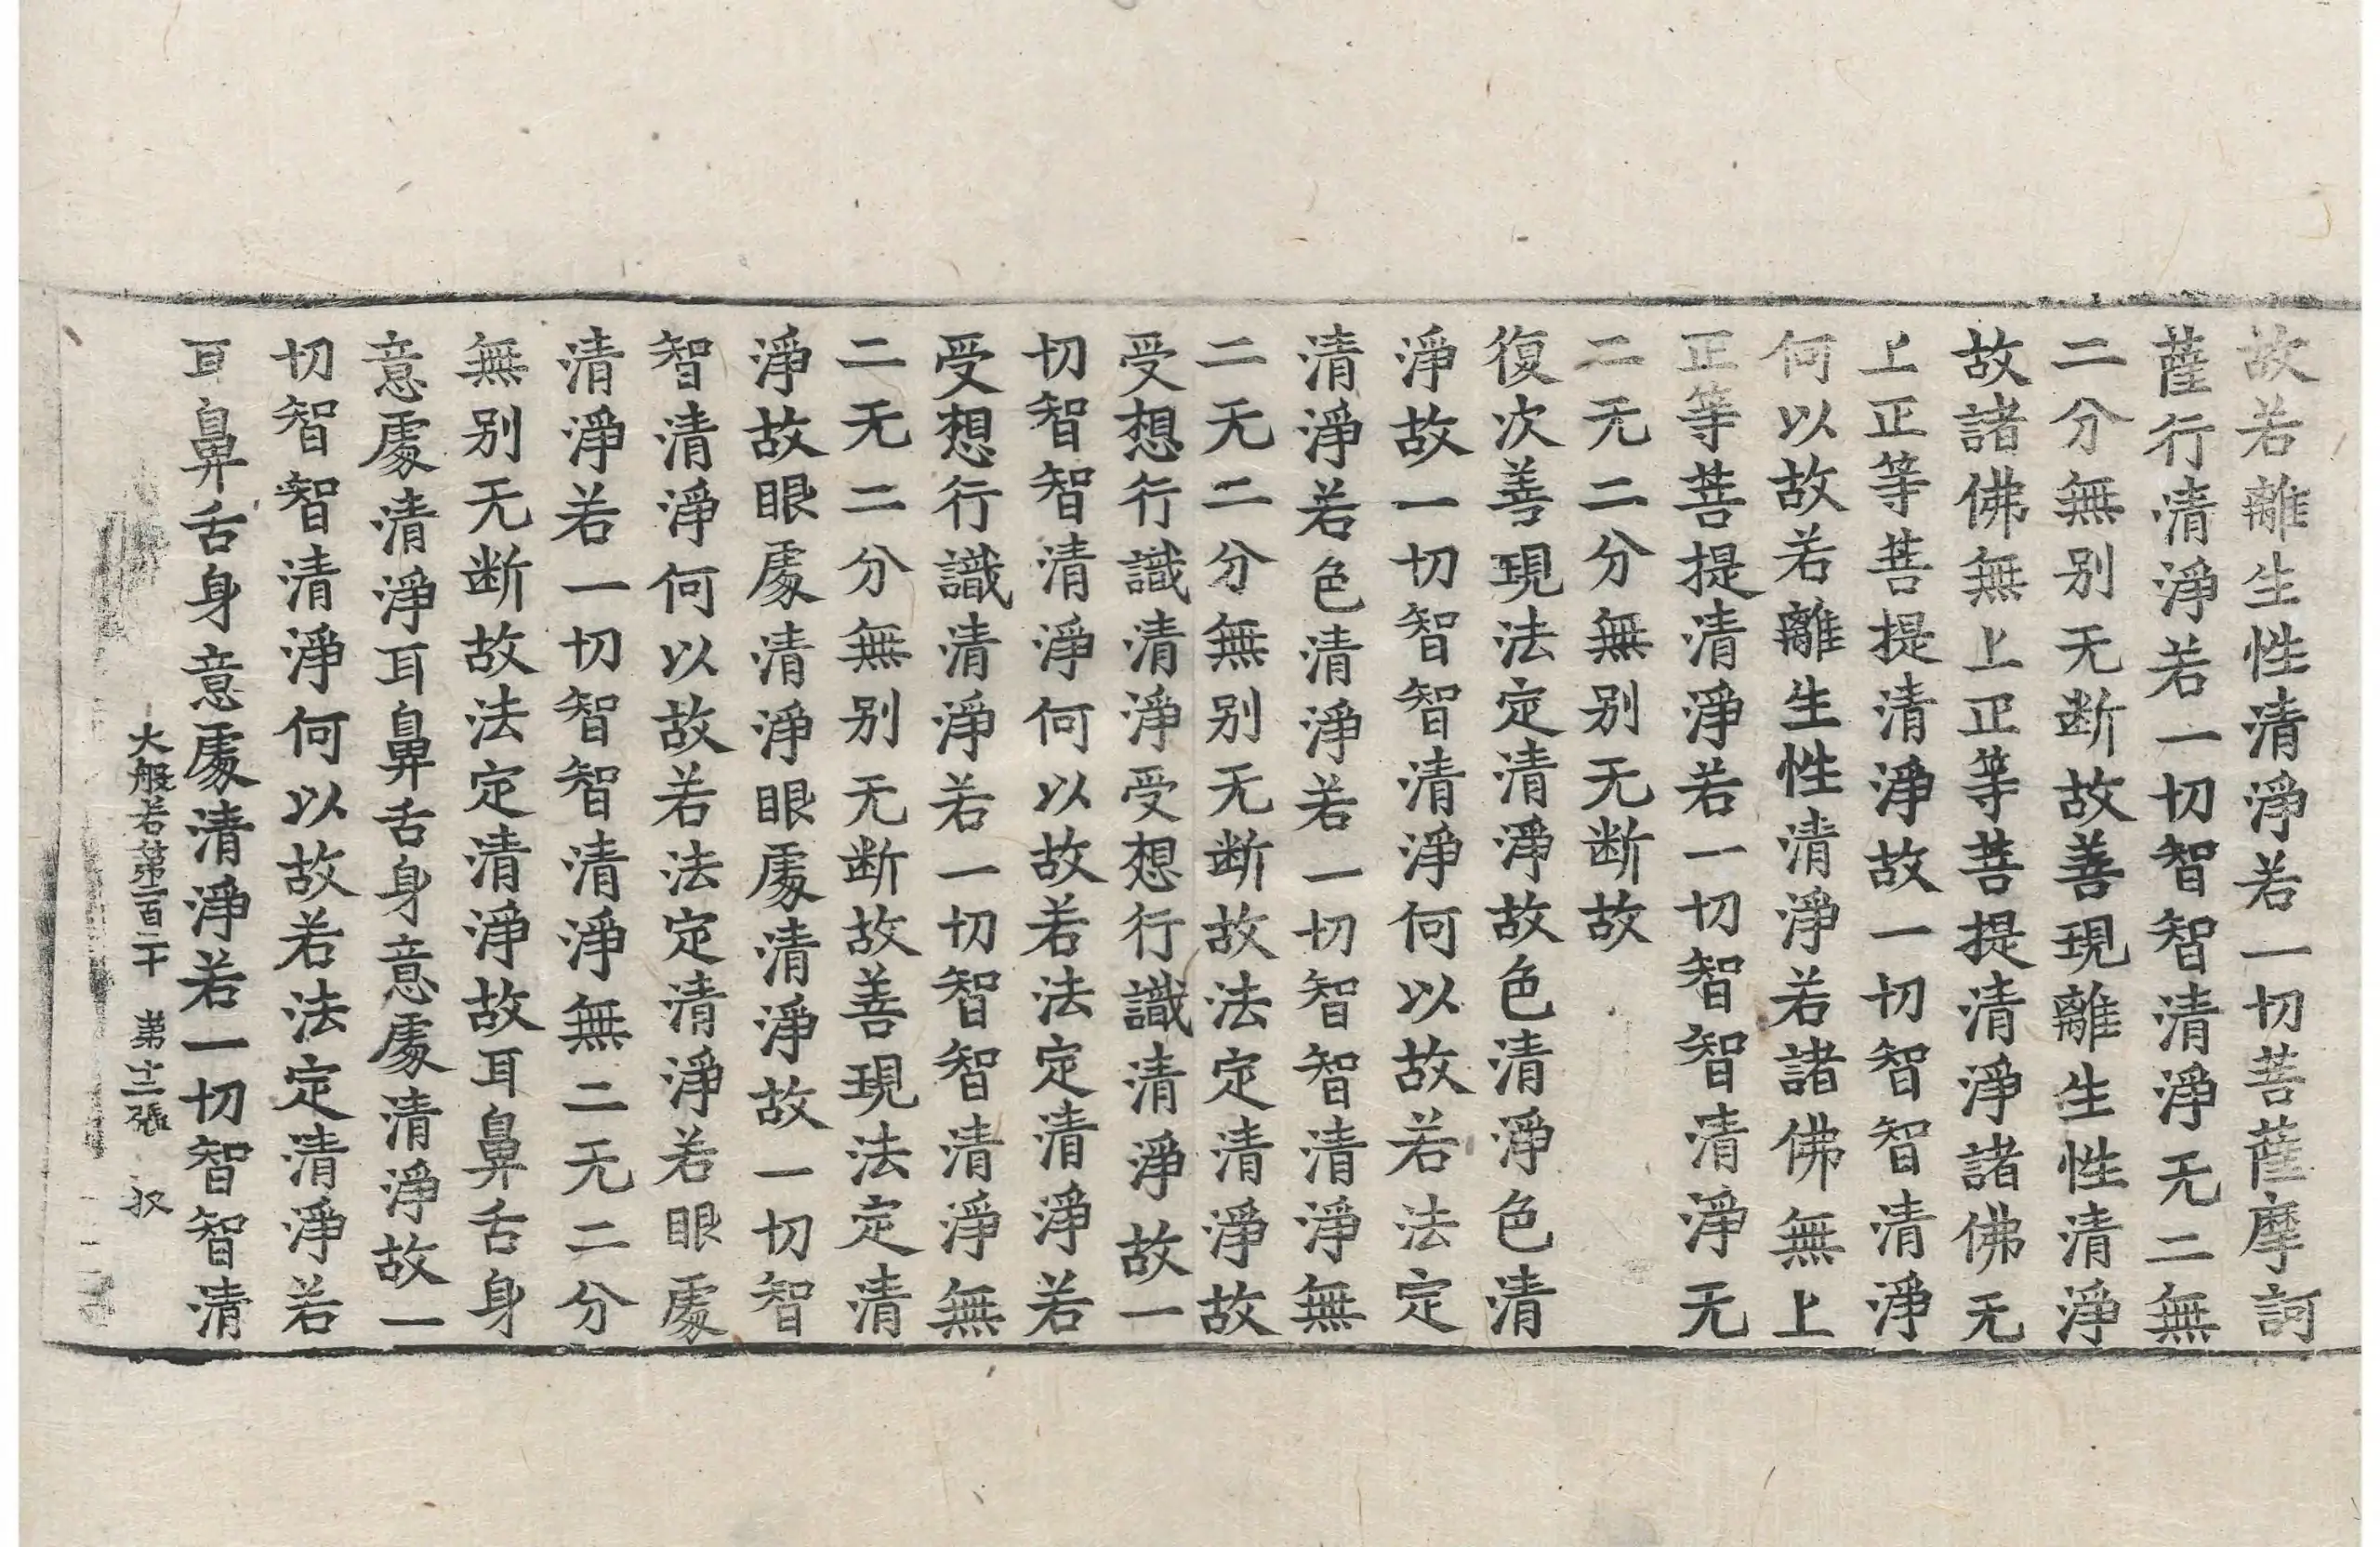 故若離生性清淨若一切菩薩摩訶
薩行清淨若一切智智清淨无二無
二分無别无断故善現離生性清淨
故諸佛無上正等菩提清淨諸佛无
上正等菩提清淨故一切智智清淨
何以故若離生性清淨若諸佛無上
正等菩提清淨若一切智智清淨无
二无二分無别无断故
復次善現法定清淨故色清淨色清
淨故一切智智清淨何以故若法定
清淨若色清淨若一切智智清淨無
二无二分無别无断故法定清淨故
受想行識清淨受想行識清淨故一
切智智清淨何以故若法定清淨若
受想行識清淨若一切智智清淨無
二无二分無别无断故善現法定清
淨故眼處清淨眼處清淨故一切智
智清淨何以故若法定清淨若眼處
清淨若一切智智清淨無二无二分
無别无断故法定清淨故耳鼻舌身
意處清淨耳鼻舌身意處清淨故一
切智智清淨何以故若法定清淨若
耳鼻舌身意處清淨若一切智智清
大般若第二百二十 第十二張 㧞